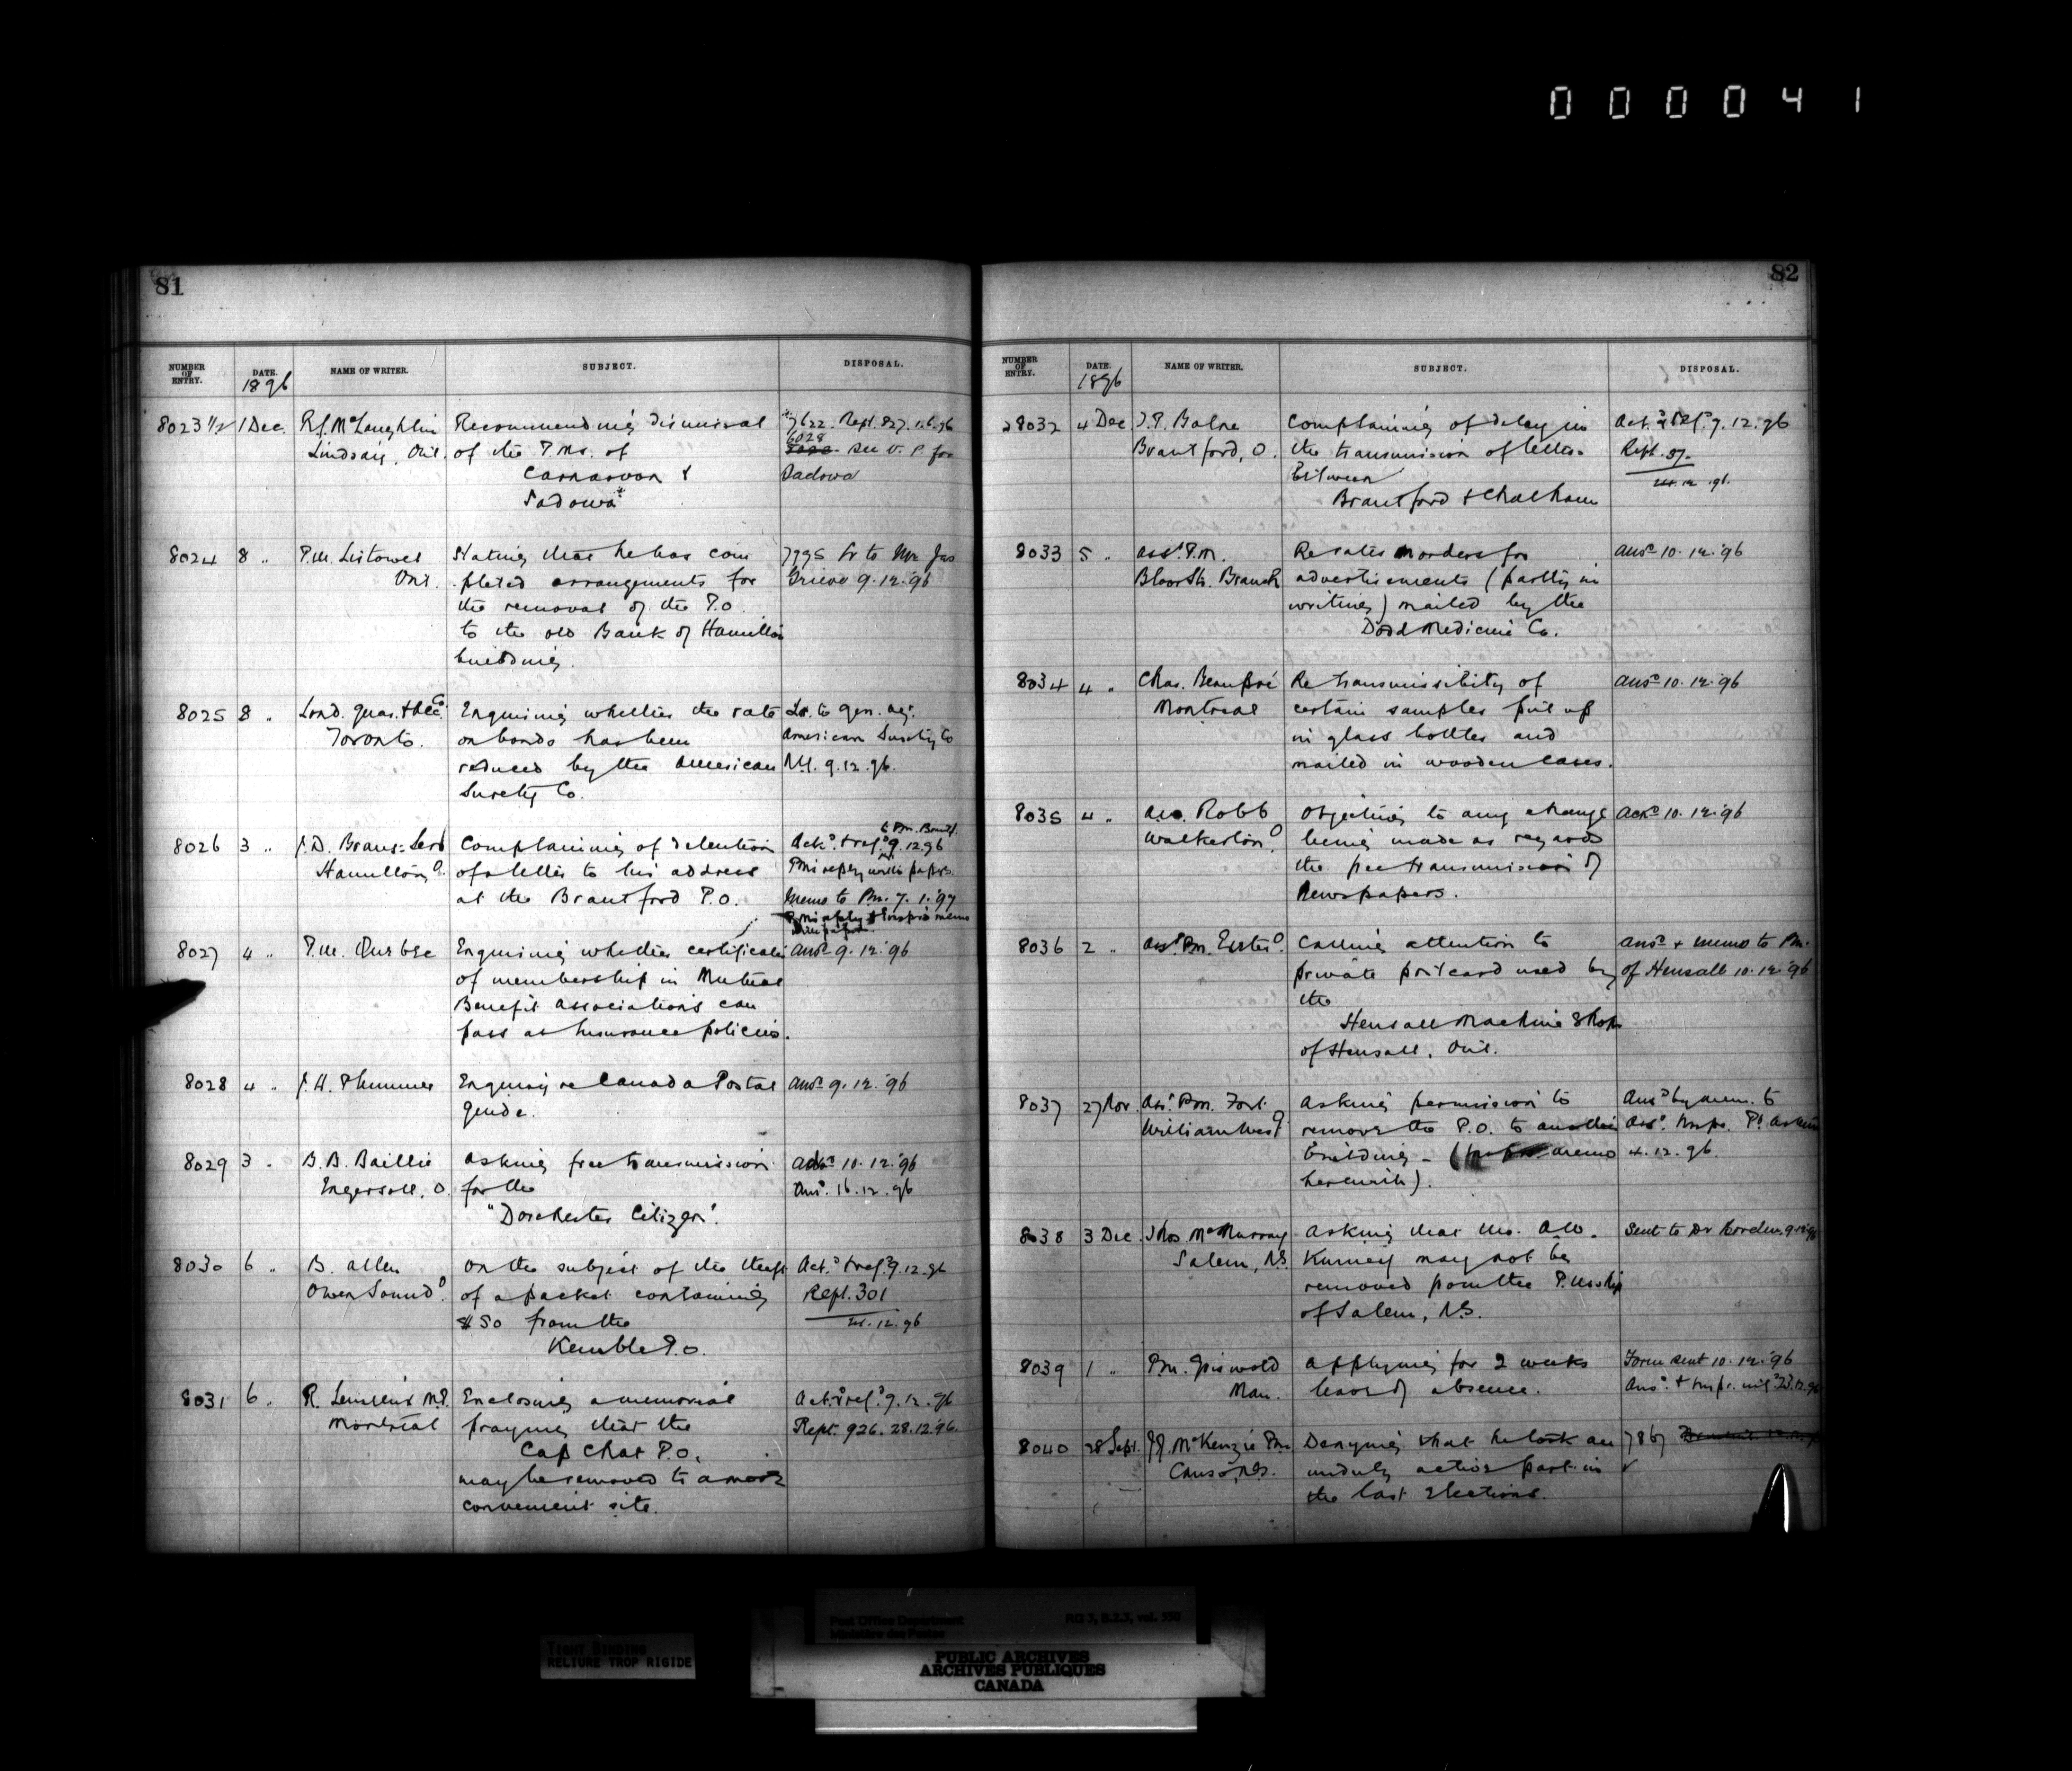 000041
81
NUMBER OF ENTRY. DATE. 1896 NAME OF WRITER. SUBJECT. DISPOSAL.
8023 1/2 1 Dec. R.J. McLaughlin Recommending dismissal 7622. Rept. 827.
Lindsay, Ont. of the P.Ms. of 6028 see V. P. for
Carnarvon & Sadowa
Sadowa
8024 8 " P.M. Listowel Stating that he has com 7795 Lr to Mr Jas
Ont. pleted arrangements for Grieve 9.12.96
the removal of the P.O.
to the old Bank of Hamilton
building.
8025 8 " Lond. Guar. & Acc. Co. Enquiring whether the rate Lr. to Gen. Agt.
Toronto. on bonds has been American Surety Co
reduced by the American N.Y. 9.12.96.
Surety Co.
to Pm. Brantf.
8026 3 " J.D. Complaining of detention Ack.d & ref.d 9.12.96
Hamilton, O. of a letter to his address Pm's reply with papers.
at the Brantford P.O. Memo to Pm. 7.1.97
8027 4 " P.M. Quebec Enquiring whether certificates Ansd 9.12.96
of membership in Mutual
Benefit associations can
pass as Insurance policies.
8028 4 " J.H. Plummer Enquiry re Canada Postal Ansd 9.12.96
guide.
8029 3 " B.B. Baillie Asking free transmission Ackd 10.12.96
Ingersoll, O. for the Ansd. 16.12.96
"Dorchester Citizen".
8030 6 " B. Allen On the subject of the theft Ack.d & ref.d 9.12.96
Owen Sound O. of a packet containing Rept. 301
$50 from the 12.96
Kemble P.O.
8031 6 " R. Lemieux M.P. Enclosing a memorial Ack.d & ref.d 9.12.96
Montreal praying that the Rept. 926. 28.12.96.
Cap Chat P.O.
may be removed to a more
convenient site.
82
NUMBER OF ENTRY. DATE. 1896 NAME OF WRITER. SUBJECT. DISPOSAL.
8032 4 Dec Complaining of delay in Ack.d & ref.d 9.12.96
Brantford, O. the transmission of letters Rept. 57.
between 12.96.
Brantford & Chatham
8033 5 " Asst. P.M. Re rates on orders for Ansd 10.12.96
Bloor St. Branch advertisements (partly in
writing) mailed by the
Dodd Medicine Co.
8034 4 " Chas. Beaupré Re transmissibility of Ansd 10.12.96
Montreal certain samples put up
in glass bottles and
mailed in wooden cases.
8035 4 " Robb Objecting to any change Ackd 10.12.96
Walkerton, O being made as regards
the free transmission of
Newspapers.
8036 2 " Asst. Pm. Exeter O. Calling attention to Ansd & memo to Pm.
private post card used by of Hensall 10.12.96
the
Hensall Machine Shop
of Hensall, Ont.
8037 27 Nov. Asst. Pm. Fort Asking permission to Ansd by mem. to
William West O. remove the P.O. to another Asst. Inspr. P.
building - ( memo 4.12.96.
herewith).
8038 3 Dec. Thos. McMurray Asking that Mr. A.W. Sent to Dr Borden 9.12.96
Salem, N.S. may not be
removed from the P.Mship
of Salem, N.S.
8039 1 " Pm. Griswold Applying for 2 weeks Form sent 10.12.96
Man. leave of absence. Ansd. & Inspr. 23.12.96
8040 28 Sept. McKenzie Pm. Denying that he took an 7867
Canso, N.S. unduly active part in
the last elections.
Post Office Department RG 3, B.2.3, vol. 550
Ministère des Postes
TIGHT BINDING
RELIURE TROP RIGIDE
PUBLIC ARCHIVES
ARCHIVES PUBLIQUES
CANADA